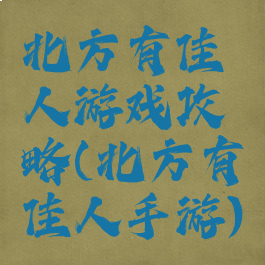 北方有佳
人游戏攻
略(北方有
佳人手游)